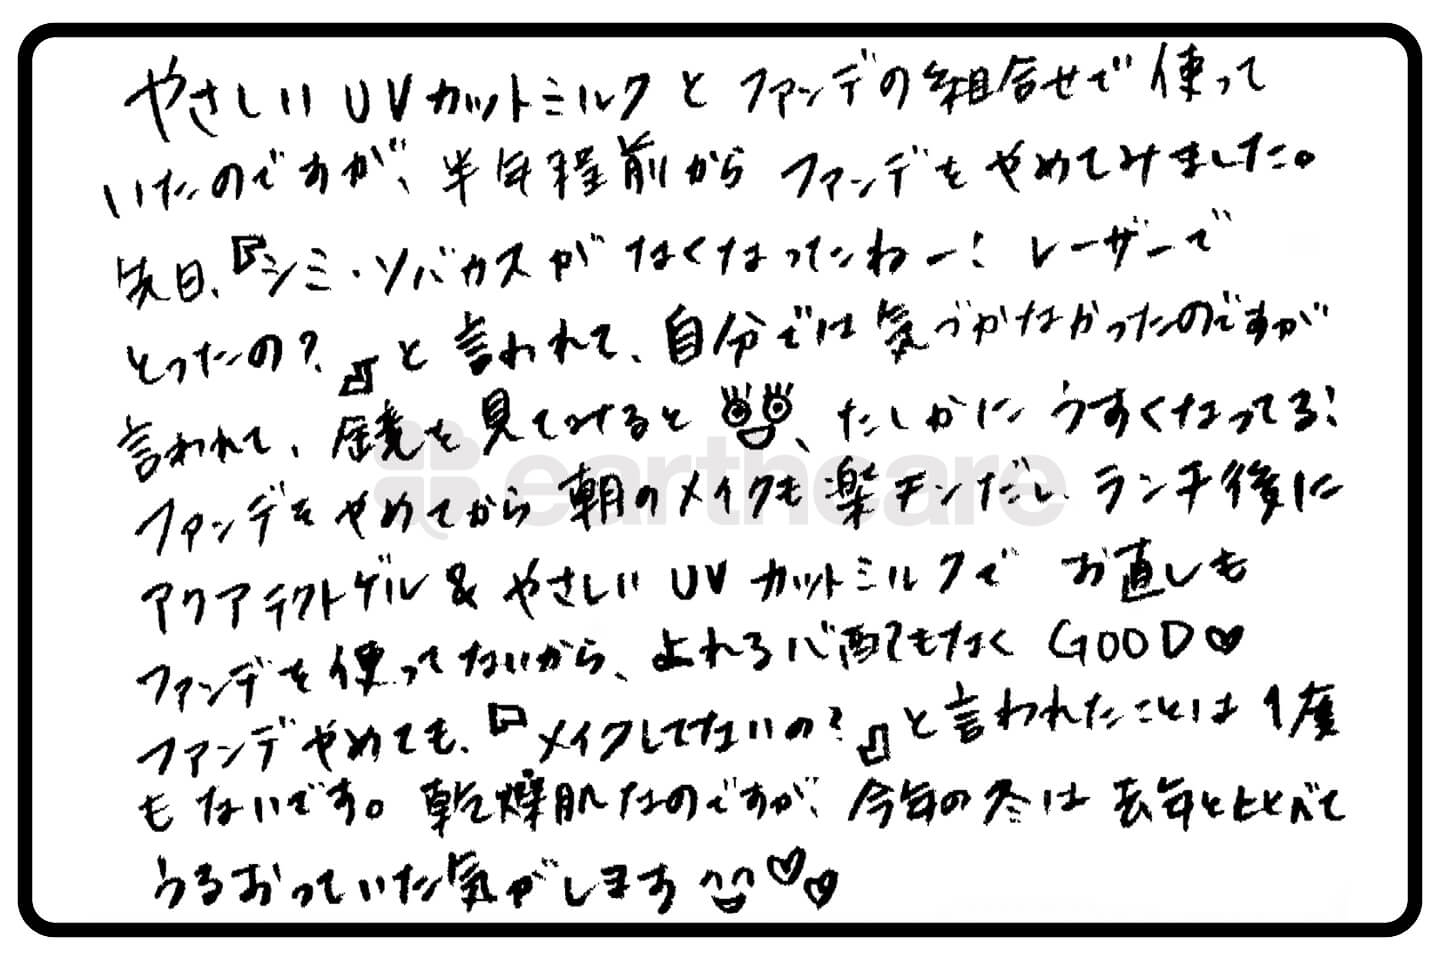 やさしいUVカットミルクとファンデの組合せで使って
いたのですが、半年程前からファンデをやめてみました。
先日、『シミ・ソバカスがなくなったわー!レーザーで
とったの?』と言われて、自分では気づかなかったのですが
言われて、鏡を見てみると、たしかにうすくなってる!
earthcare
ファンデをやめてから朝のメイクも楽チンだし、ランチ後に
アクアテクトゲル&やさしいUVカットミルクでお直しも
ファンデを使ってないから、よれる心配もなくGOOD♡
ファンデやめても、『メイクしてないの?』と言われたことは1度
もないです。乾燥肌なのですが、今年の冬は去年と比べて
うるおっていた気がします